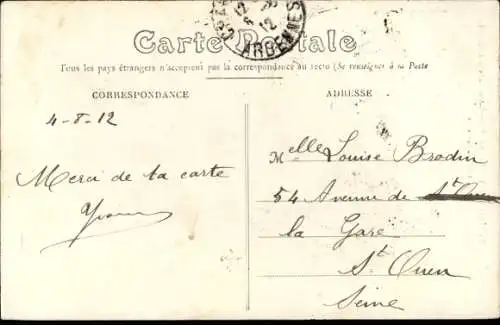 12
8
12
ARDENNES
Carte Postale
Tous les pays étrangers n'acceptent pas la correspondance au recto (Se renseigner à la Poste
CORRESPONDANCE
ADRESSE
4-8-12
Merci de ta carte
Yvonne
Melle Louise Brodin
54 Avenue de St Ouen
la Gare
St Ouen
Seine